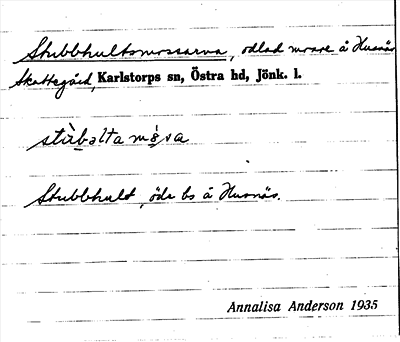 Stubbhultsmossarna, odlad mosse å Husnäs
Skattegård, Karlstorps sn, Östra hd, Jönk. l.
Stubbhult, öde bs å Husnäs.
Annalisa Anderson 1935